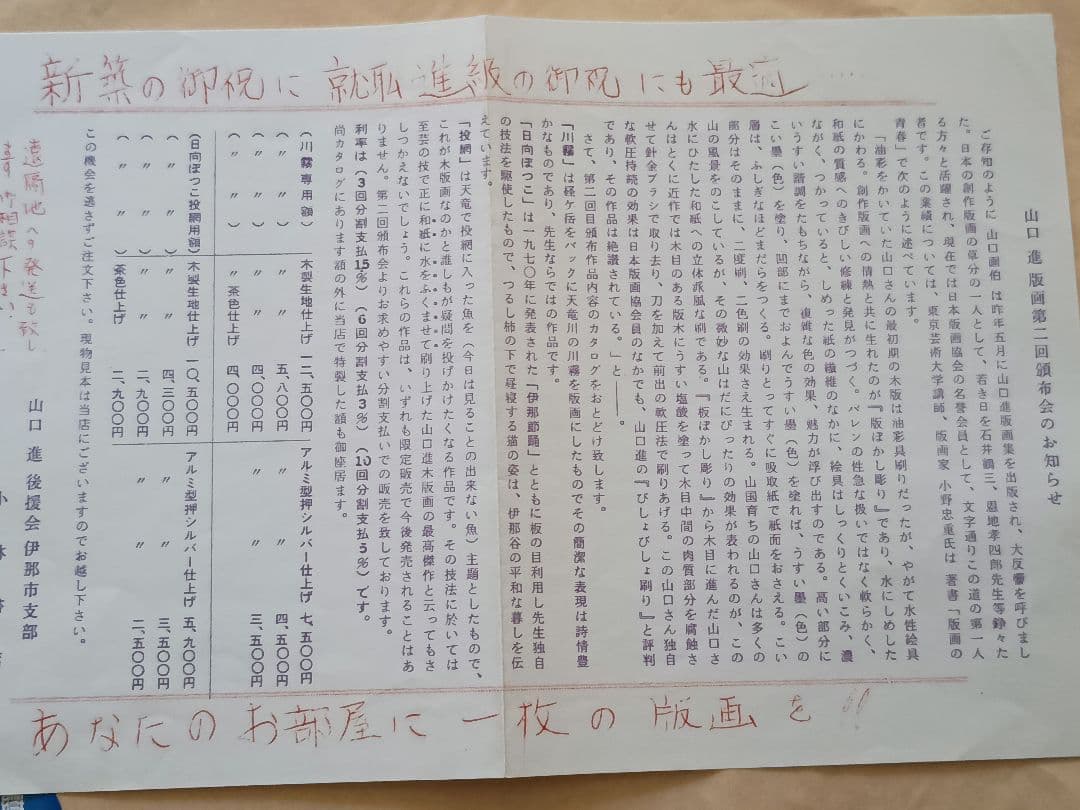 新築の御祝に 就職進級の御祝にも最適……
山口 進 版画第二回頒布会のお知らせ
ご存知のように 山口画伯 は昨年五月に山口進版画集を出版され、大反響を呼びまし
た。日本の創作版画の草分の一人として、若き日を石井鶴三、恩地孝四郎先生等錚々た
る方々と活躍され、現在では日本版画協会の名誉会員として、文字通りこの道の第一人
者です。この業績については、東京芸術大学講師、版画家 小野忠重氏は 著書「版画の
青春」で次のように述べています。
「油彩をかいていた山口さんの最初期の木版は油彩具刷りだったが、やがて水性絵具
にかわる。創作版画への情熱と共に生れたのが『版ぼかし彫り』であり、水にしめした
和紙の質感へのきびしい修練と発見がつづく。バレンの性急な扱いではなく軟らかく、
ながく、つかっていると、しめった紙の繊維のなかに、絵具はしっくりとくいこみ、濃
いうすい諧調をたもちながら、複雑な色の効果、魅力が浮び出すのである。高い部分に
こい墨（色）を塗り、凹部にまでおよんでうすい墨（色）を塗れば、うすい墨（色）の
層は、ふしぎなほどまだらをつくる。刷りとってすぐに吸取紙で紙面をおさえる。こい
部分はそのままに、二度刷、二色刷の効果さえ生まれる。山国育ちの山口さんは多くの
山の風景をのこしているが、その微妙な山はだにぴったりの効果が表われるのが、この
水にひたした和紙への立体派風な刷である。『板ぼかし彫り』から木目に進んだ山口さ
んはとくに近作では木目のある版木にうすい塩酸を塗って木目中間の肉質部分を腐蝕さ
せて針金ブラシで取り去り、刀を加えて前出の軟圧法で刷りあげる。この山口さん独自
な軟圧持続の効果は日本版画協会員のなかでも、山口進の『びしょびしょ刷り』と評判
であり、その作品は絶讃されている。」と――。
さて、第二回目頒布作品内容のカタログをおとどけ致します。
「川霧」は経ケ岳をバックに天竜川の川霧を版画にしたものでその簡潔な表現は詩情豊
かなものであり、先生ならではの作品です。
「日向ぼっこ」は一九七〇年に発表された「伊那節踊」とともに板の目利用し先生独自
の技法を駆使したもので、つるし柿の下で昼寝する猫の姿は、伊那谷の平和な暮しを伝
えています。
「投網」は天竜で投網に入った魚を（今日は見ることの出来ない魚）主題としたもので、
これが木版画なのかと誰しもが疑問を投げかけたくなる作品です。その技法に於いては
至芸の技で正に和紙に水をふくませて刷り上げた山口進木版画の最高傑作と云ってもさ
しつかえないでしょう。これらの作品は、いずれも限定販売で今後発売されることはあ
りません。第二回頒布会よりお求めやすい分割支払いでの販売を致しております。
利率は（3回分割支払15％）（6回分割支払3％）（10回分割支払5％）です。
尚カタログにあります額の外に当店で特製した額も御座居ます。
（川霧専用額） 木製生地仕上げ 一二、五〇〇円 アルミ型押シルバー仕上げ 七、五〇〇円
（〃 〃） 〃 〃 五、八〇〇円 〃 〃 四、五〇〇円
（〃 〃） 〃 〃 四、〇〇〇円 〃 〃 三、五〇〇円
（〃 〃） 茶色仕上げ 四、〇〇〇円
（日向ぼっこ投網用額） 木製生地仕上げ 一〇、五〇〇円 アルミ型押シルバー仕上げ 五、九〇〇円
（〃 〃） 〃 〃 四、三〇〇円 〃 〃 三、五〇〇円
（〃 〃） 〃 〃 二、九〇〇円 〃 〃 二、五〇〇円
（〃 〃） 茶色仕上げ 二、九〇〇円
この機会を逃さずご注文下さい。現物見本は当店にございますのでお越し下さい。
山口 進 後援会 伊那市支部
小林
遠隔地への発送も致し
ます 御相談下さい。
あなたのお部屋に一枚の版画を!!